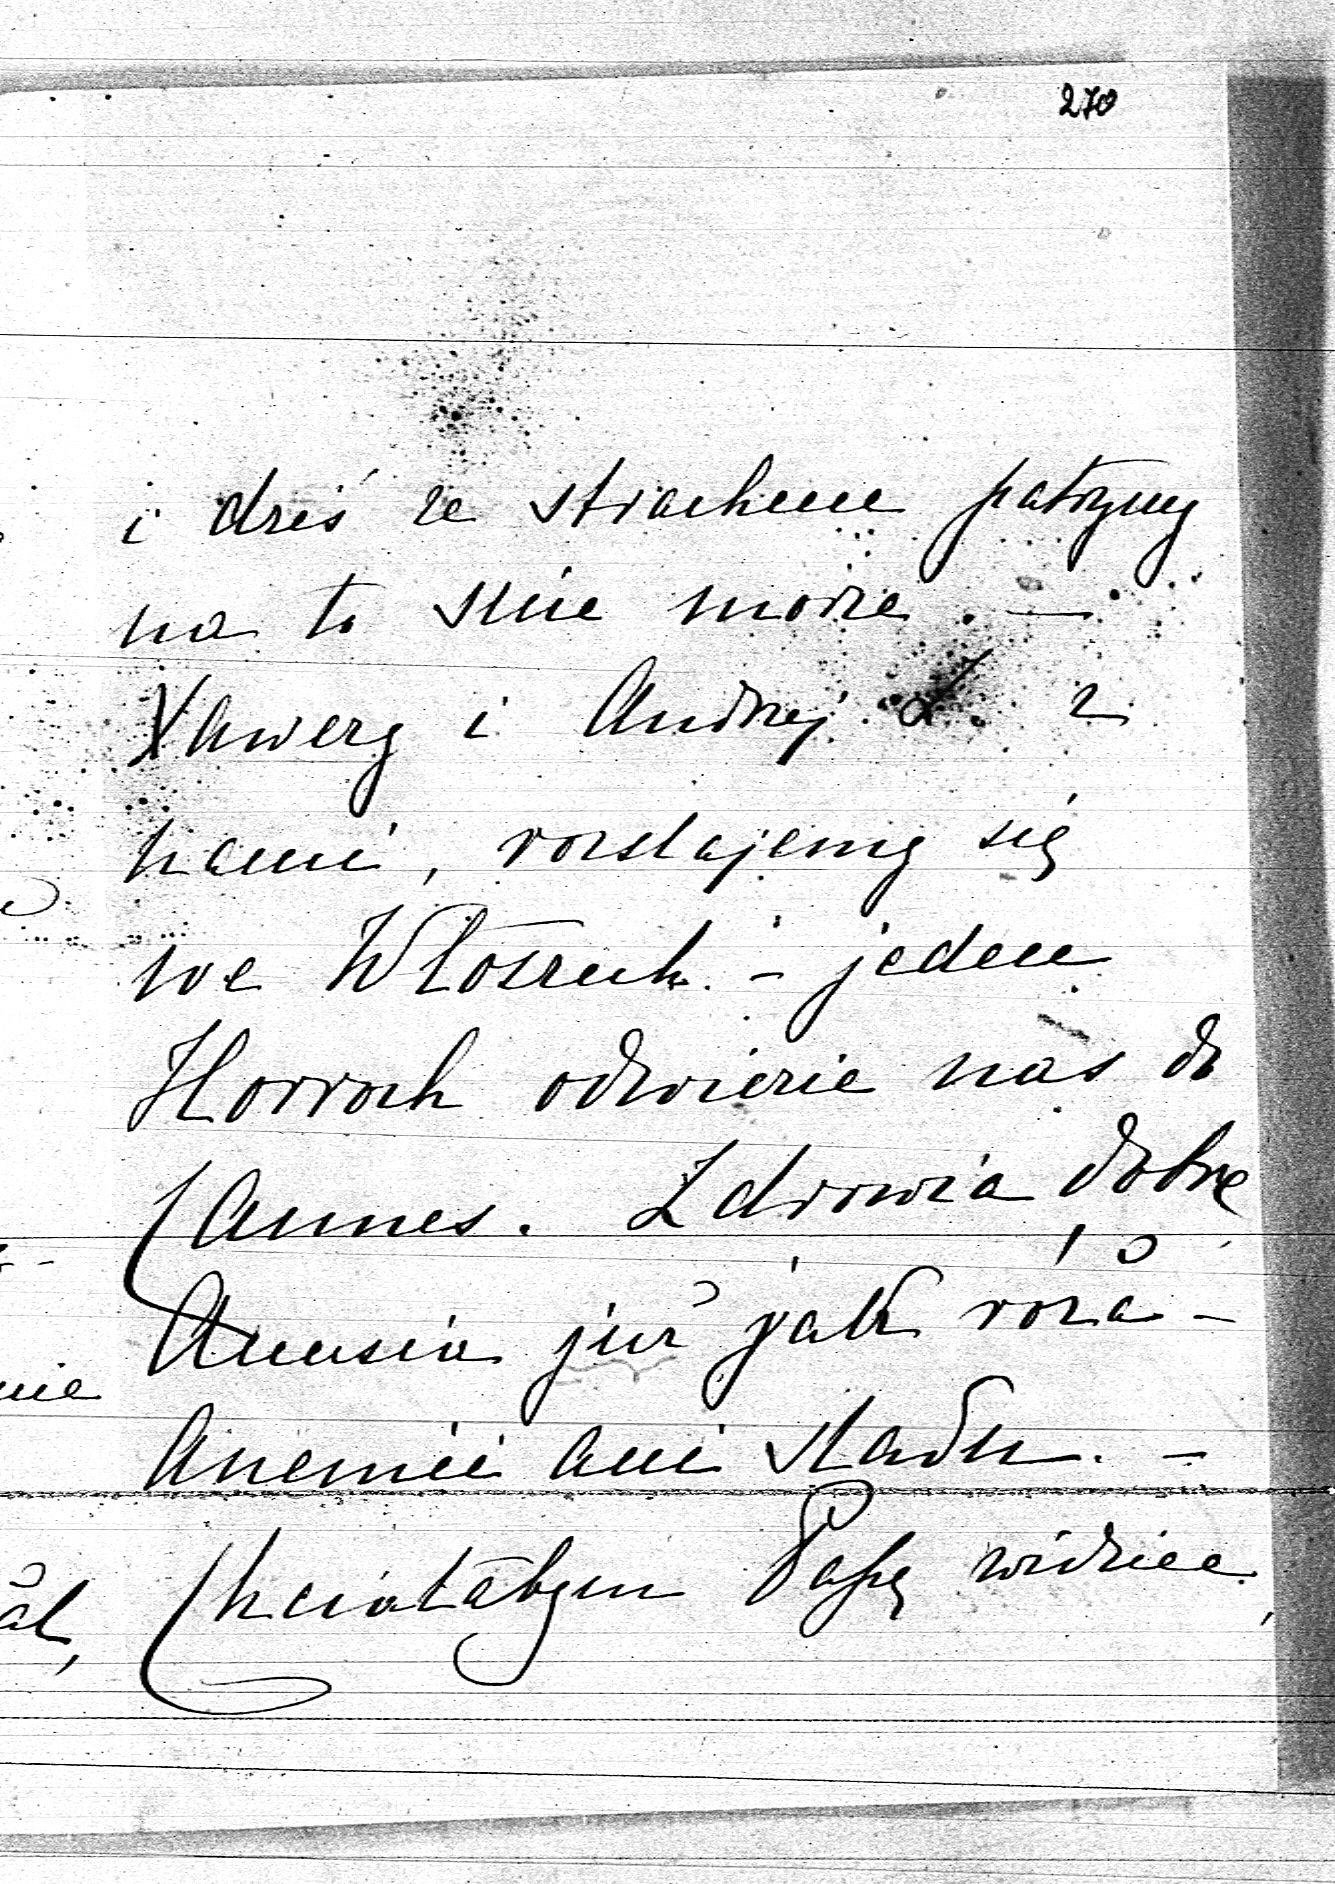 270
i dziś ze strachem patrzymy
na to sine morze. —
Xawery i Andrzej Z. z
nami, rozstajemy się
we Włoszech. – jeden
Horroch odwiezie nas do
Cannes. Zdrowia dobre
Anusia już jak róża –
Anemii ani śladu. –
Chciałabym Papę widzieć,